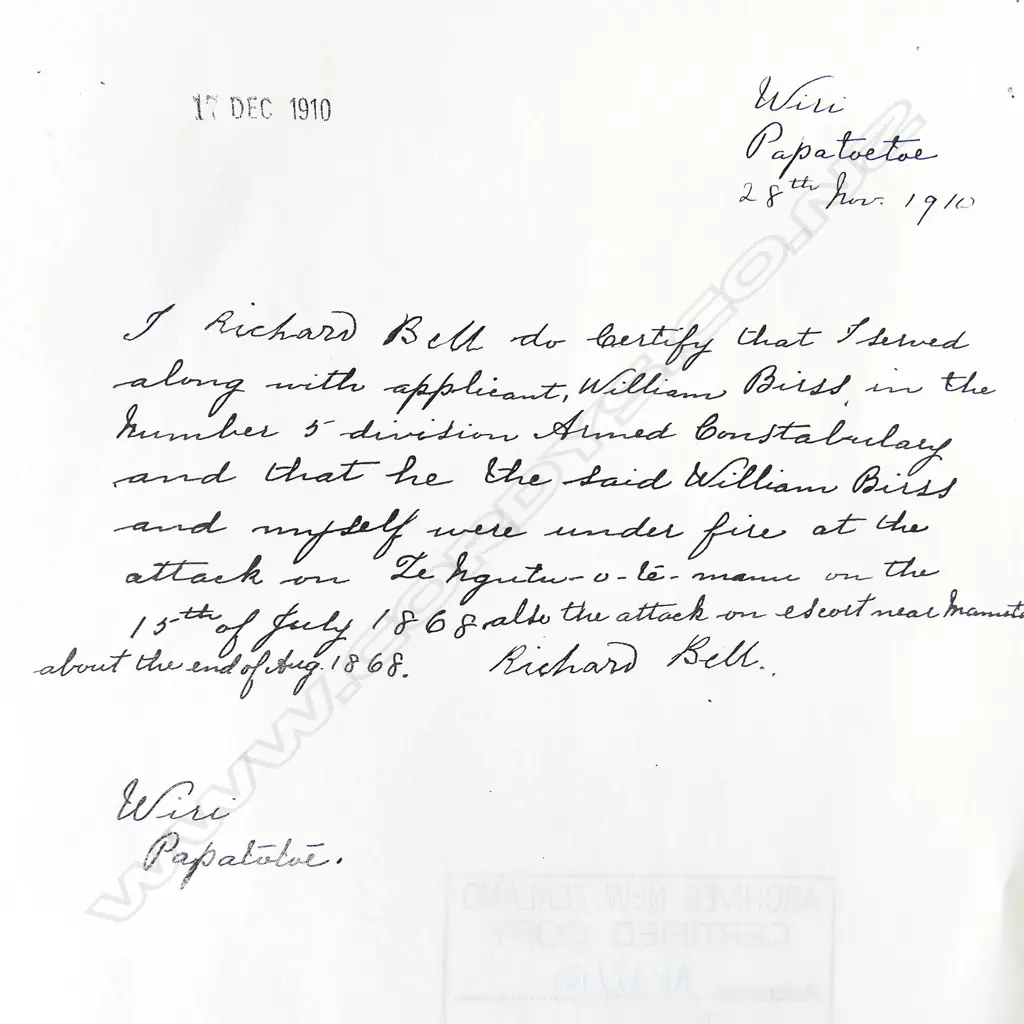 17 DEC 1910
Wiri
Papatoetoe
28th Nov. 1910
I Richard Bell do Certify that I served
along with applicant, William Birss, in the
Number 5 division Armed Constabulary
and that he the said William Birss
and myself were under fire at the
attack on Te Ngutu-o-te-manu on the
15th of July 1868 also the attack on escort near
about the end of Aug. 1868. Richard Bell.
Wiri
Papatōtoē.
ARCHIVES NEW ZEALAND
CERTIFIED COPY
Reference
WWW.CORDYS.CO.NZ